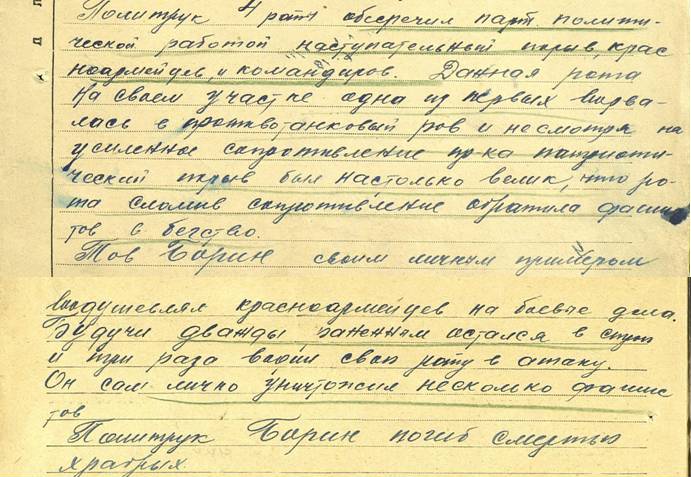 Политрук 4 роты обеспечил парт. полити-
ческой работой наступательный порыв, крас
ноармейцев, и командиров. Данная рота
на своем участке одна из первых ворва-
лась в противотанковый ров и несмотря на
усиленное сопротивление пр-ка патриоти-
ческий порыв был настолько велик, что ро-
та сломив сопротивление обратила фашис
тов в бегство.
Тов Борин своим личным примером
воодушевлял красноармейцев на боевые дела.
Будучи дважды раненным остался в строю
и три раза водил свою роту в атаку.
Он сам лично уничтожил несколько фашис
тов
Политрук Борин погиб смертью
храбрых.